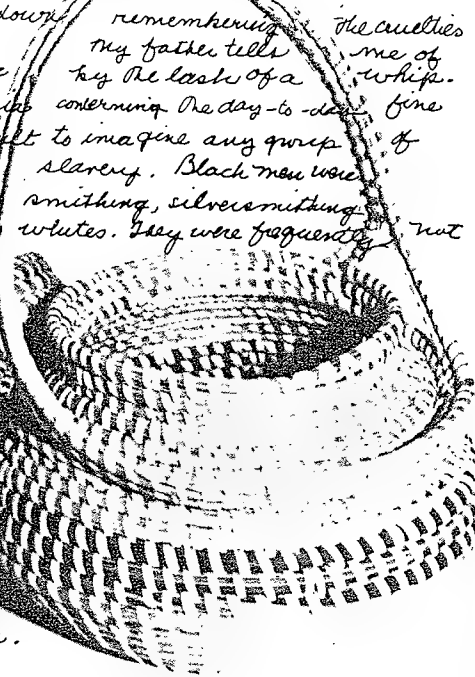 down remembering the cruelties
my father tells me of
by the lash of a whip.
concerning the day-to-day fine
to imagine any group of
slavery. Black men were
smithing, silversmithing
whites. They were frequently not